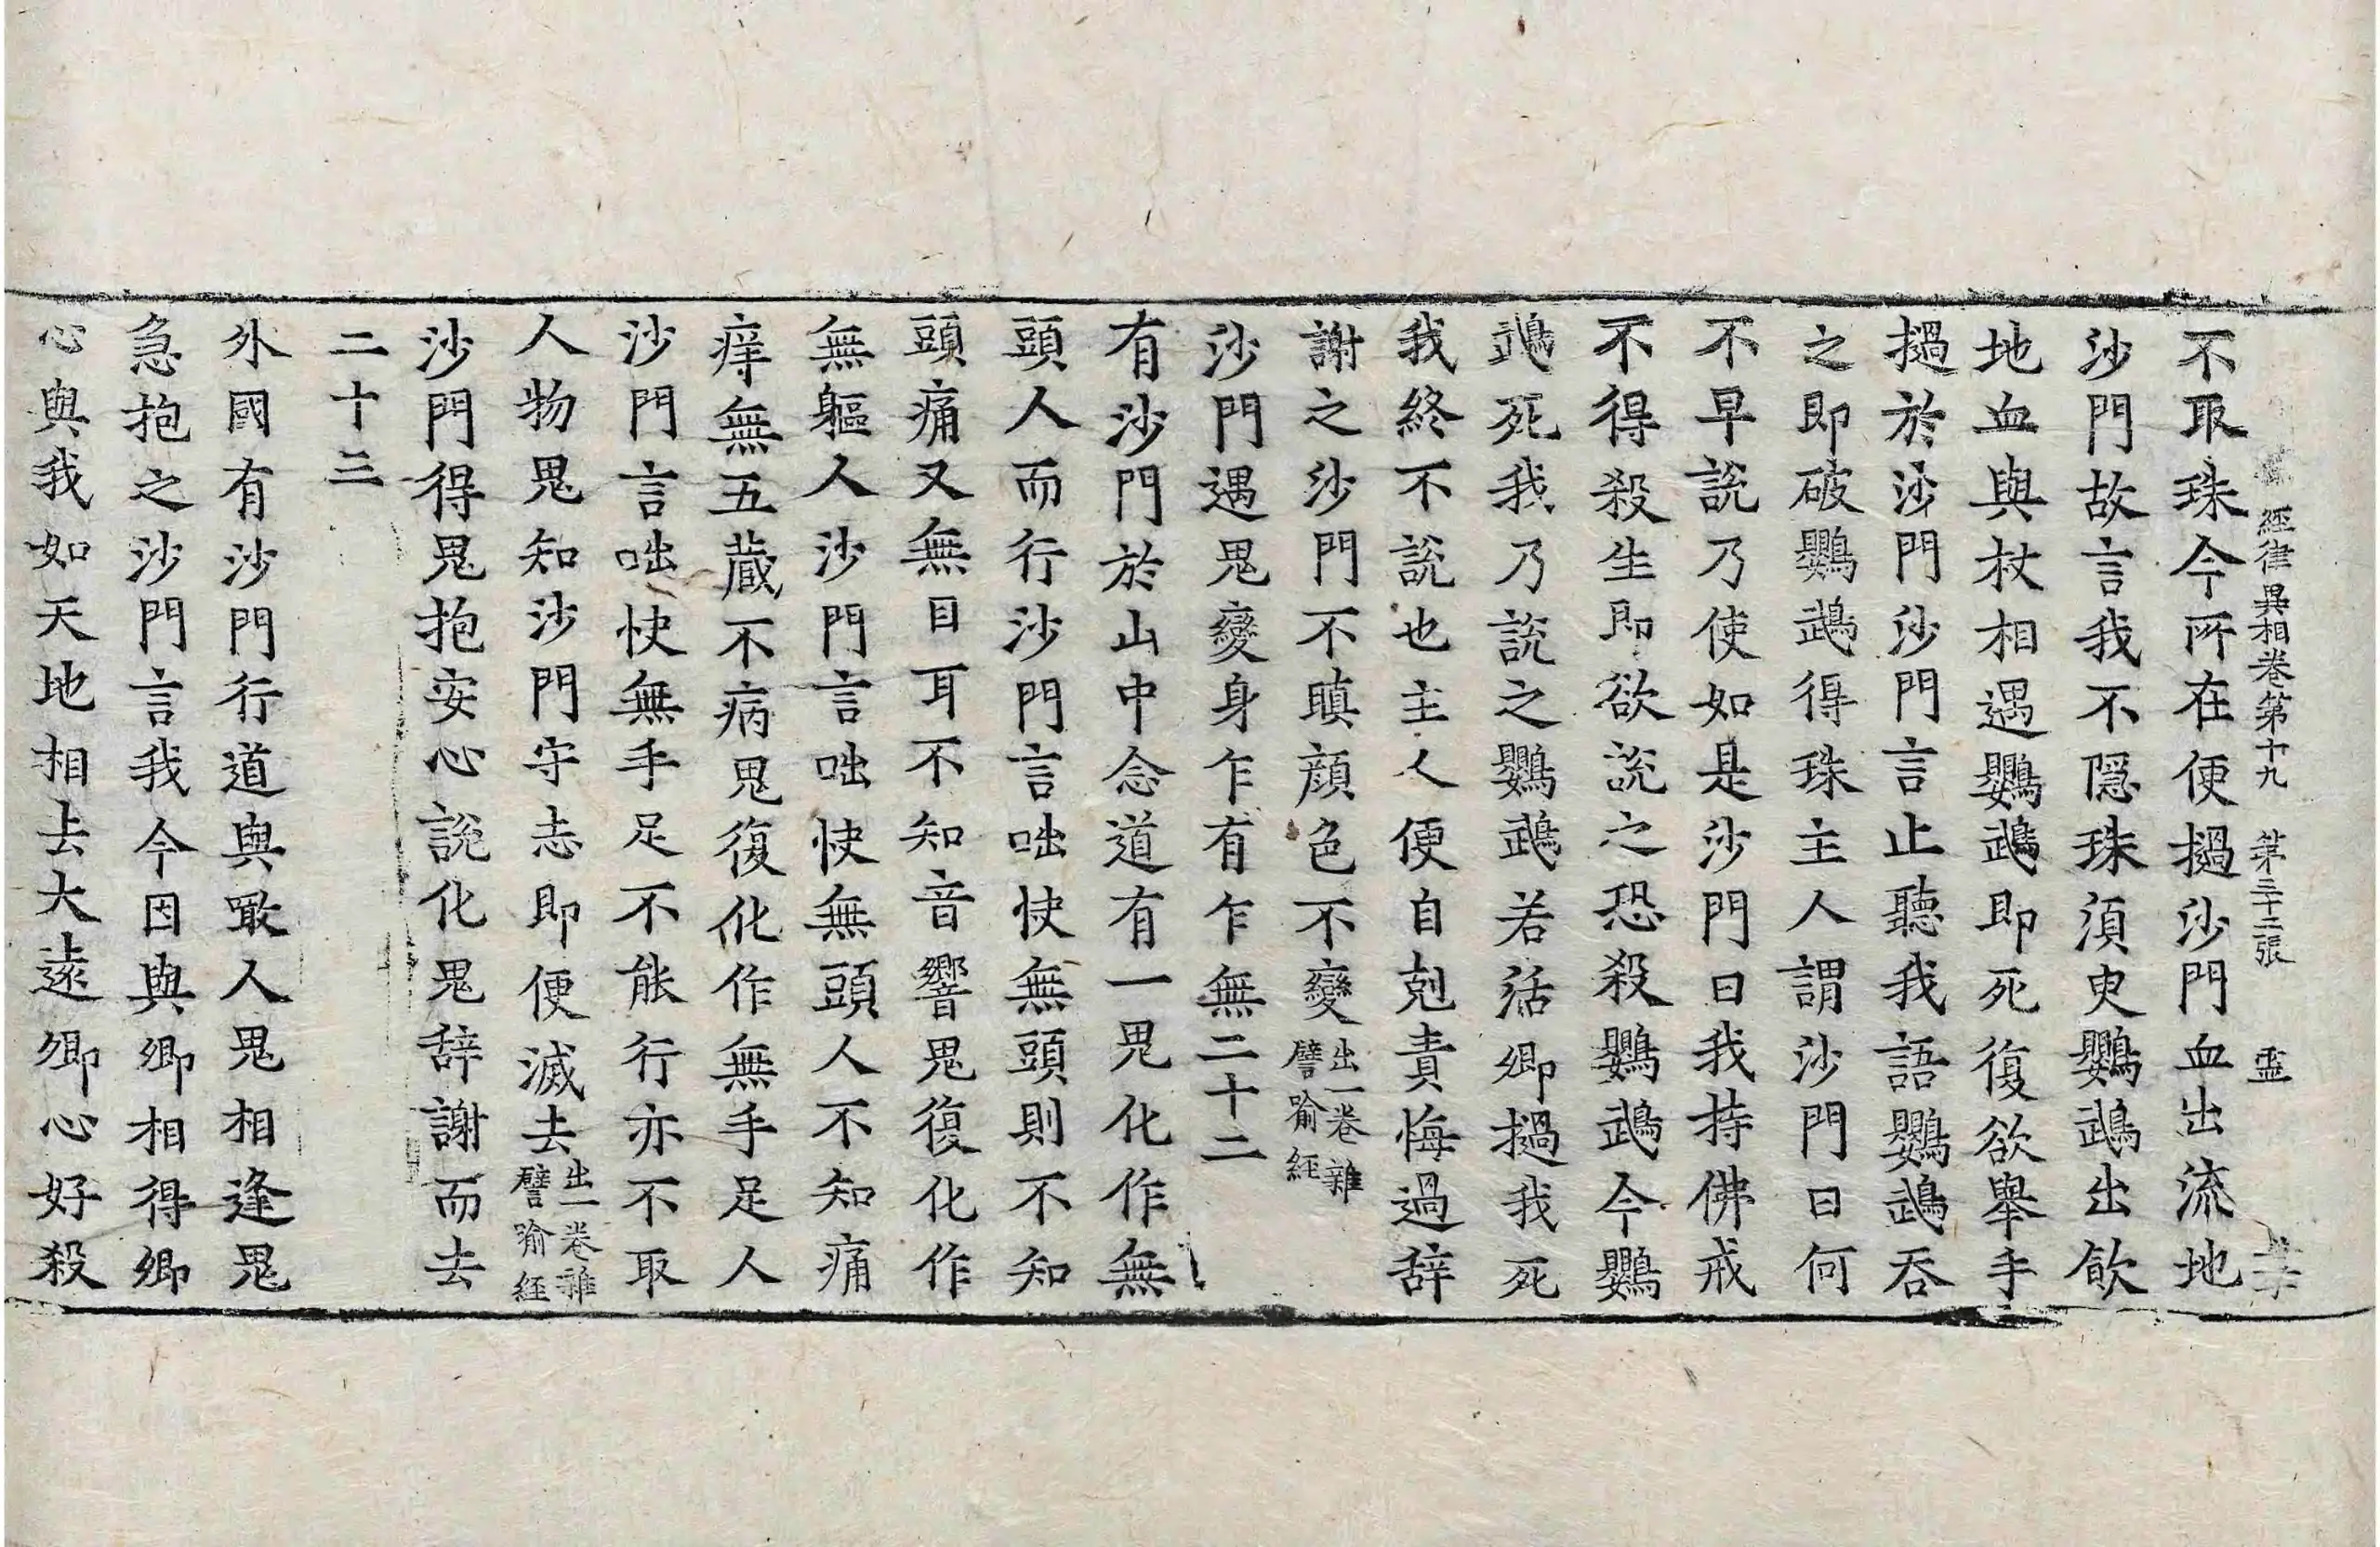 經律異相卷第十九 第三十二張 靈
不取珠今所在便撾沙門血出流地
沙門故言我不隱珠須臾鸚鵡出飲
地血與杖相遇鸚鵡即死復欲舉手
撾於沙門沙門言止聽我語鸚鵡吞
之即破鸚鵡得珠主人謂沙門曰何
不早說乃使如是沙門曰我持佛戒
不得殺生即欲說之恐殺鸚鵡今鸚
鵡死我乃說之鸚鵡若活卿撾我死
我終不說也主人便自剋責悔過辞
謝之沙門不瞋顔色不變出一卷雜譬喻經
沙門遇鬼變身乍有乍無二十二
有沙門於山中念道有一鬼化作無
頭人而行沙門言咄快無頭則不知
頭痛又無目耳不知音響鬼復化作
無軀人沙門言咄快無頭人不知痛
痒無五蔵不病鬼復化作無手足人
沙門言咄快無手足不能行亦不取
人物鬼知沙門守志即便滅去出一卷雜譬喻經
沙門得鬼抱安心說化鬼辞謝而去
二十三
外國有沙門行道與噉人鬼相逢鬼
急抱之沙門言我今因與卿相得卿
心與我如天地相去大遠卿心好殺